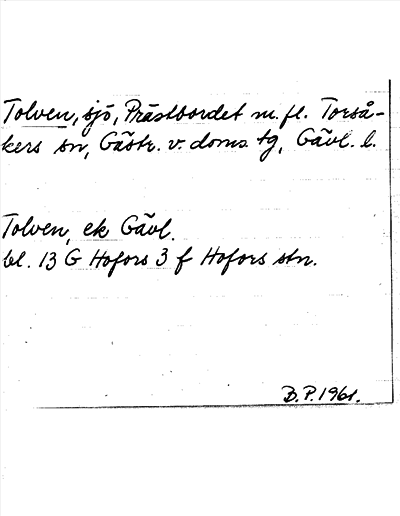 Tolven, sjö, Prästbordet m. fl. Torså-
kers sn, Gästr. v. doms. tg, Gävl. l.
Tolven, ek Gävl.
bl. 13 G Hofors 3 f Hofors stn.
B.P. 1961.